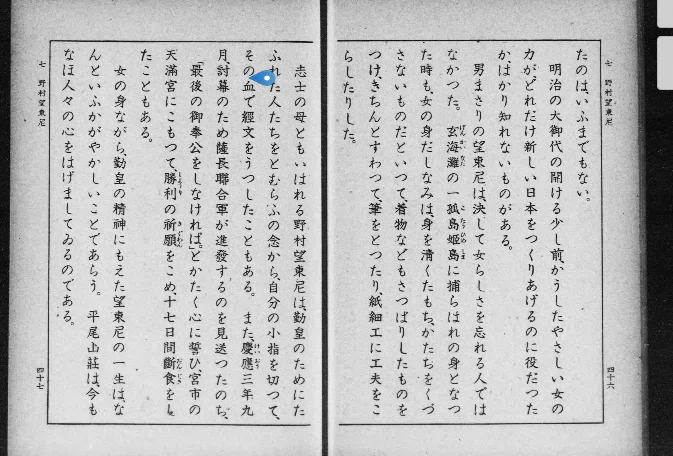 七 野村望東尼
たのは、いふまでもない。
明治の大御代の開ける少し前、かうしたやさしい女の
力がどれだけ新しい日本をつくりあげるのに役だつた
か、はかり知れないものがある。
男まさりの望東尼は、決して女らしさを忘れる人では
なかつた。玄海灘の一孤島姫島に捕らはれの身となつ
た時も、女の身だしなみは、身を清くたもち、かたちをくづ
さないものだといつて、着物などもさつぱりしたものを
つけ、きちんとすわつて、筆をとつたり、紙細工に工夫をこ
らしたりした。
四十六
志士の母ともいはれる野村望東尼は、勤皇のためにた
ふれた人たちをとむらふの念から、自分の小指を切つて、
その血で經文をうつしたこともある。また、慶應三年九
月、討幕のため薩長聯合軍が進發するのを見送つたのち、
「最後の御奉公をしなければ。」とかたく心に誓ひ、宮市の
天滿宮にこもつて、勝利の祈願をこめ、十七日間斷食をし
たこともある。
女の身ながら、勤皇の精神にもえた望東尼の一生は、な
んといふかがやかしいことであらう。平尾山莊は、今も
なほ人々の心をはげましてゐるのである。
七 野村望東尼
四十七